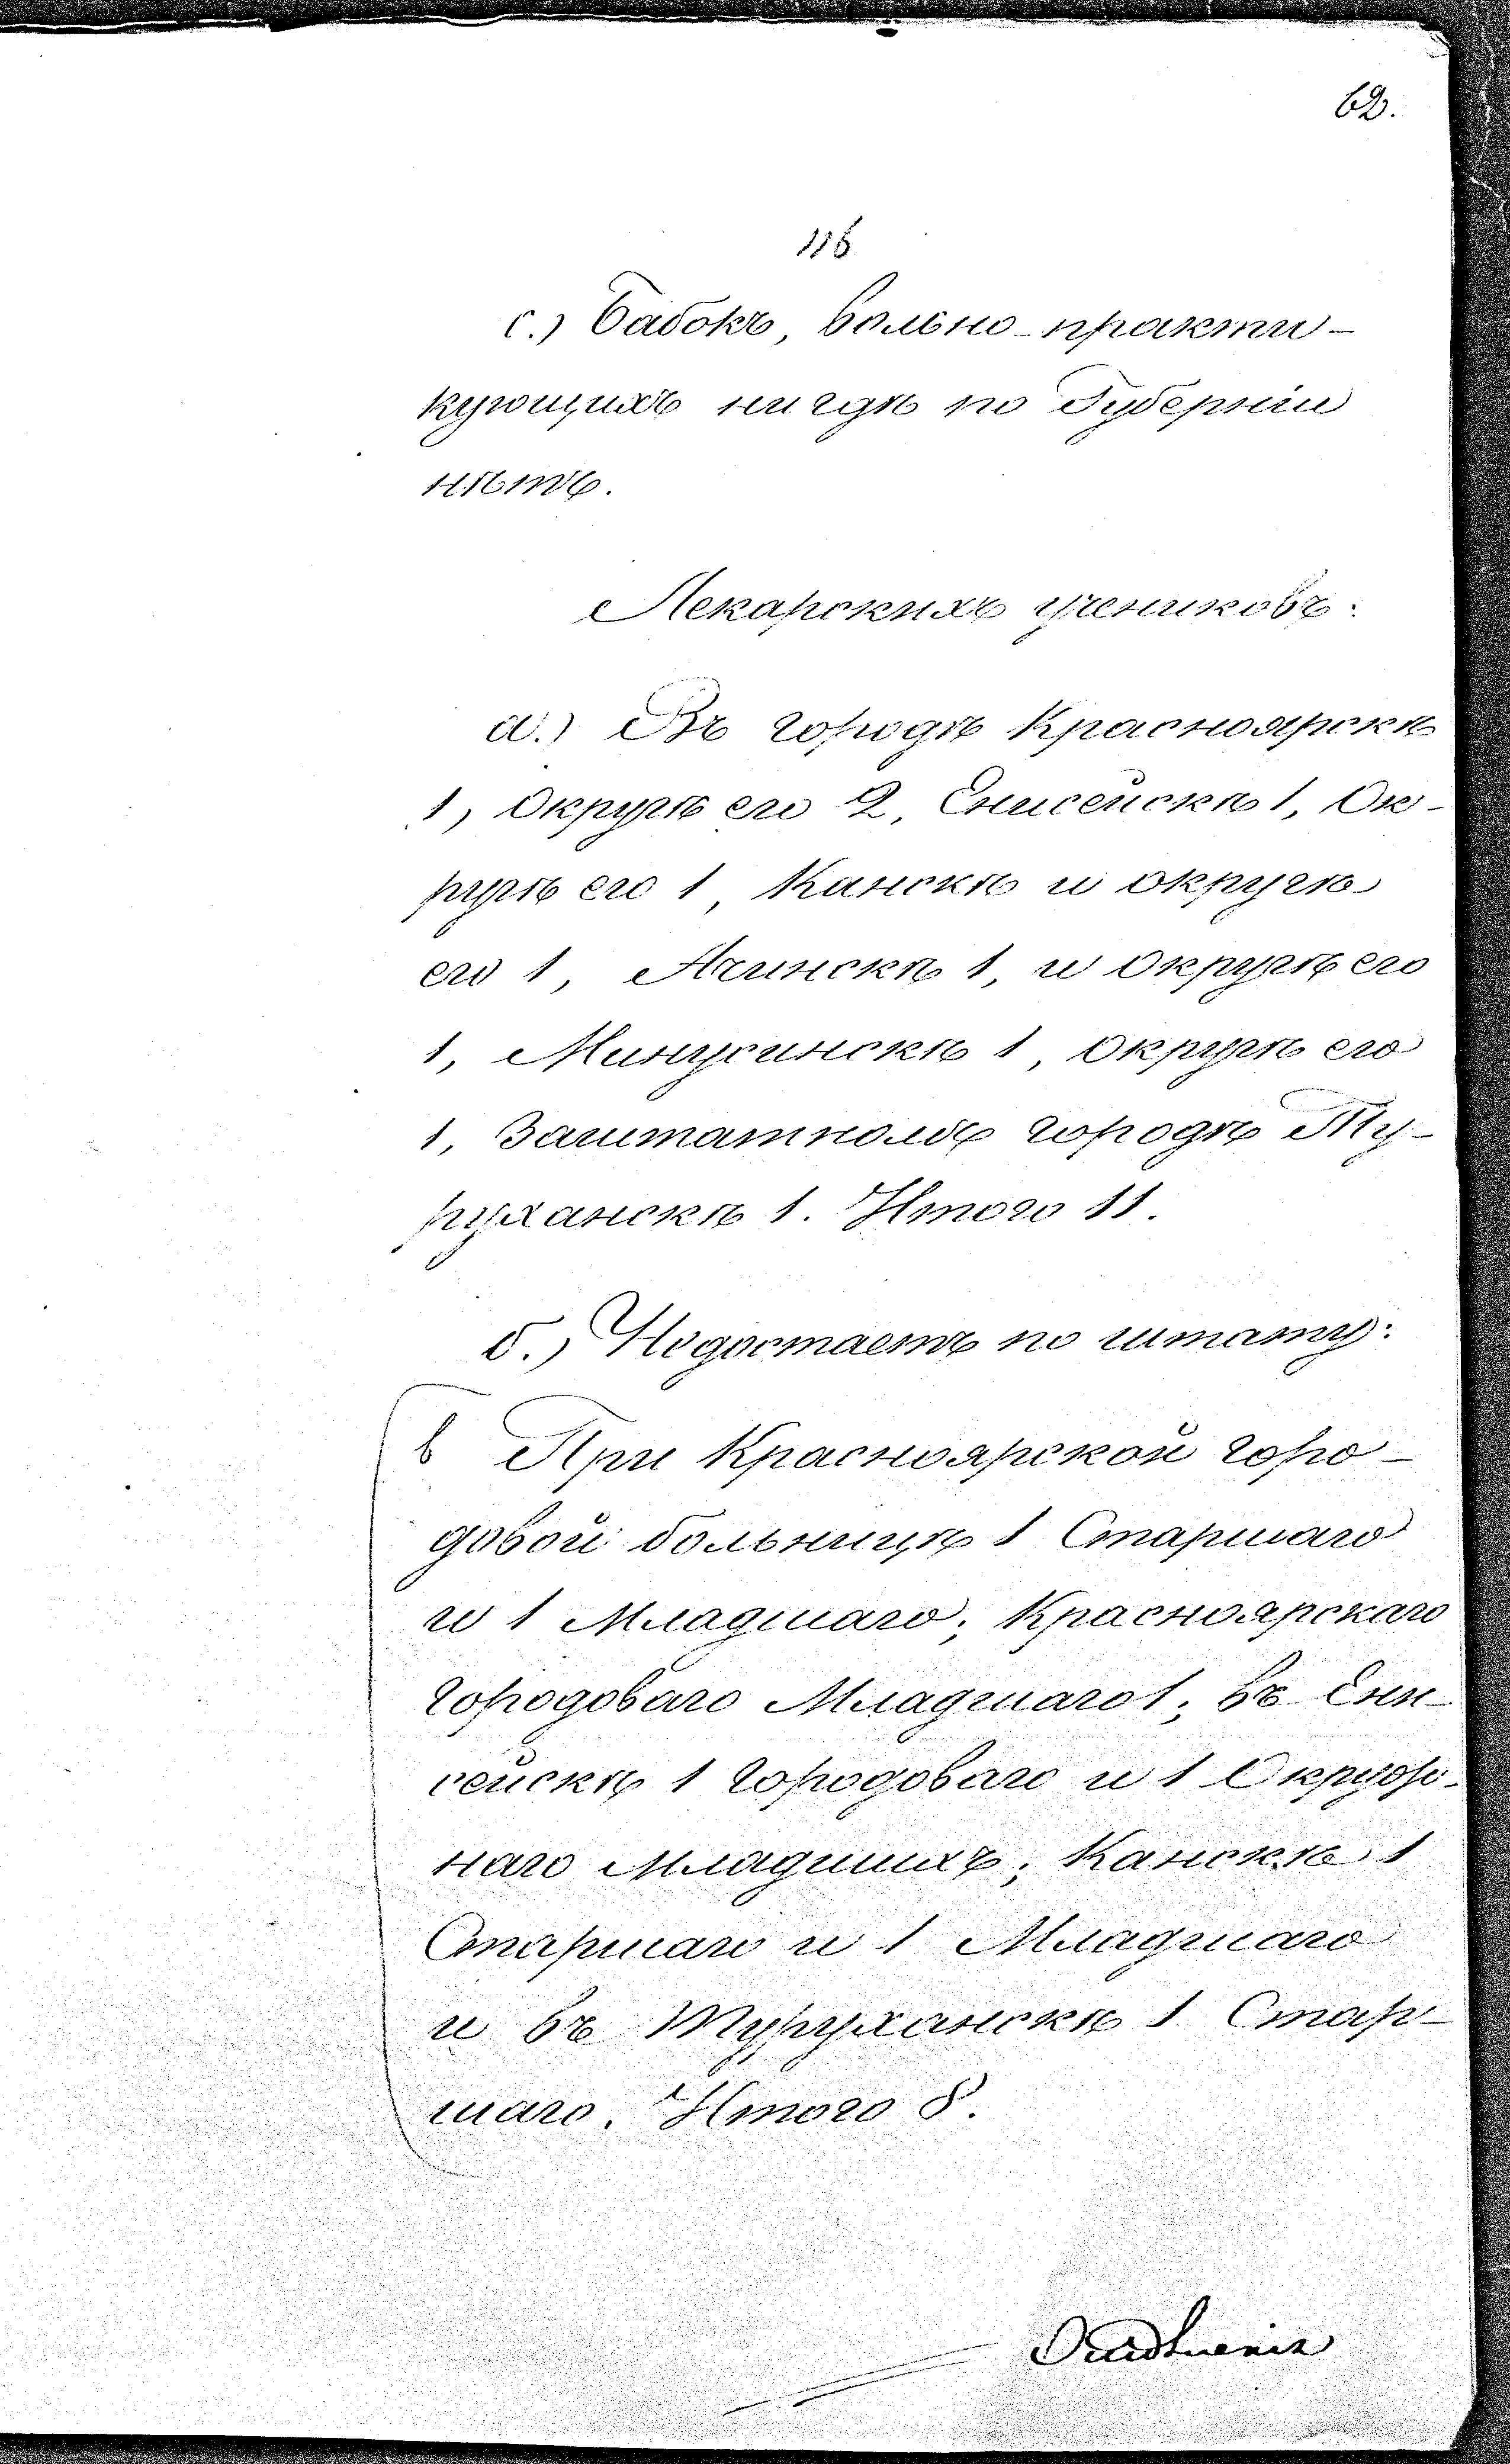 62.
116
с.) Бабокъ, вольно-практи-
кующихъ нигдѣ по Губерніи
нѣтъ.
Лекарскихъ учениковъ:
а.) Въ городѣ Красноярскѣ
1, Округѣ его 2, Енисейскѣ 1, Ок-
ругѣ его 1, Канскѣ и округѣ
его 1, Ачинскѣ 1, и округѣ его
1, Минусинскѣ 1, Округѣ его
1, Заштатномъ городѣ Ту-
руханскѣ 1. Итого 11.
б.) Недостаетъ по штату:
в При Красноярской горо-
довой больницѣ 1 Старшаго
и 1 Младшаго; Красноярскаго
городоваго Младшаго 1; въ Ени-
сейскѣ 1 городоваго и 1 Окруж-
наго младшихъ; Канскѣ 1
Старшаго и 1 Младшаго
и въ Туруханскѣ 1 Стар-
шаго. Итого 8.